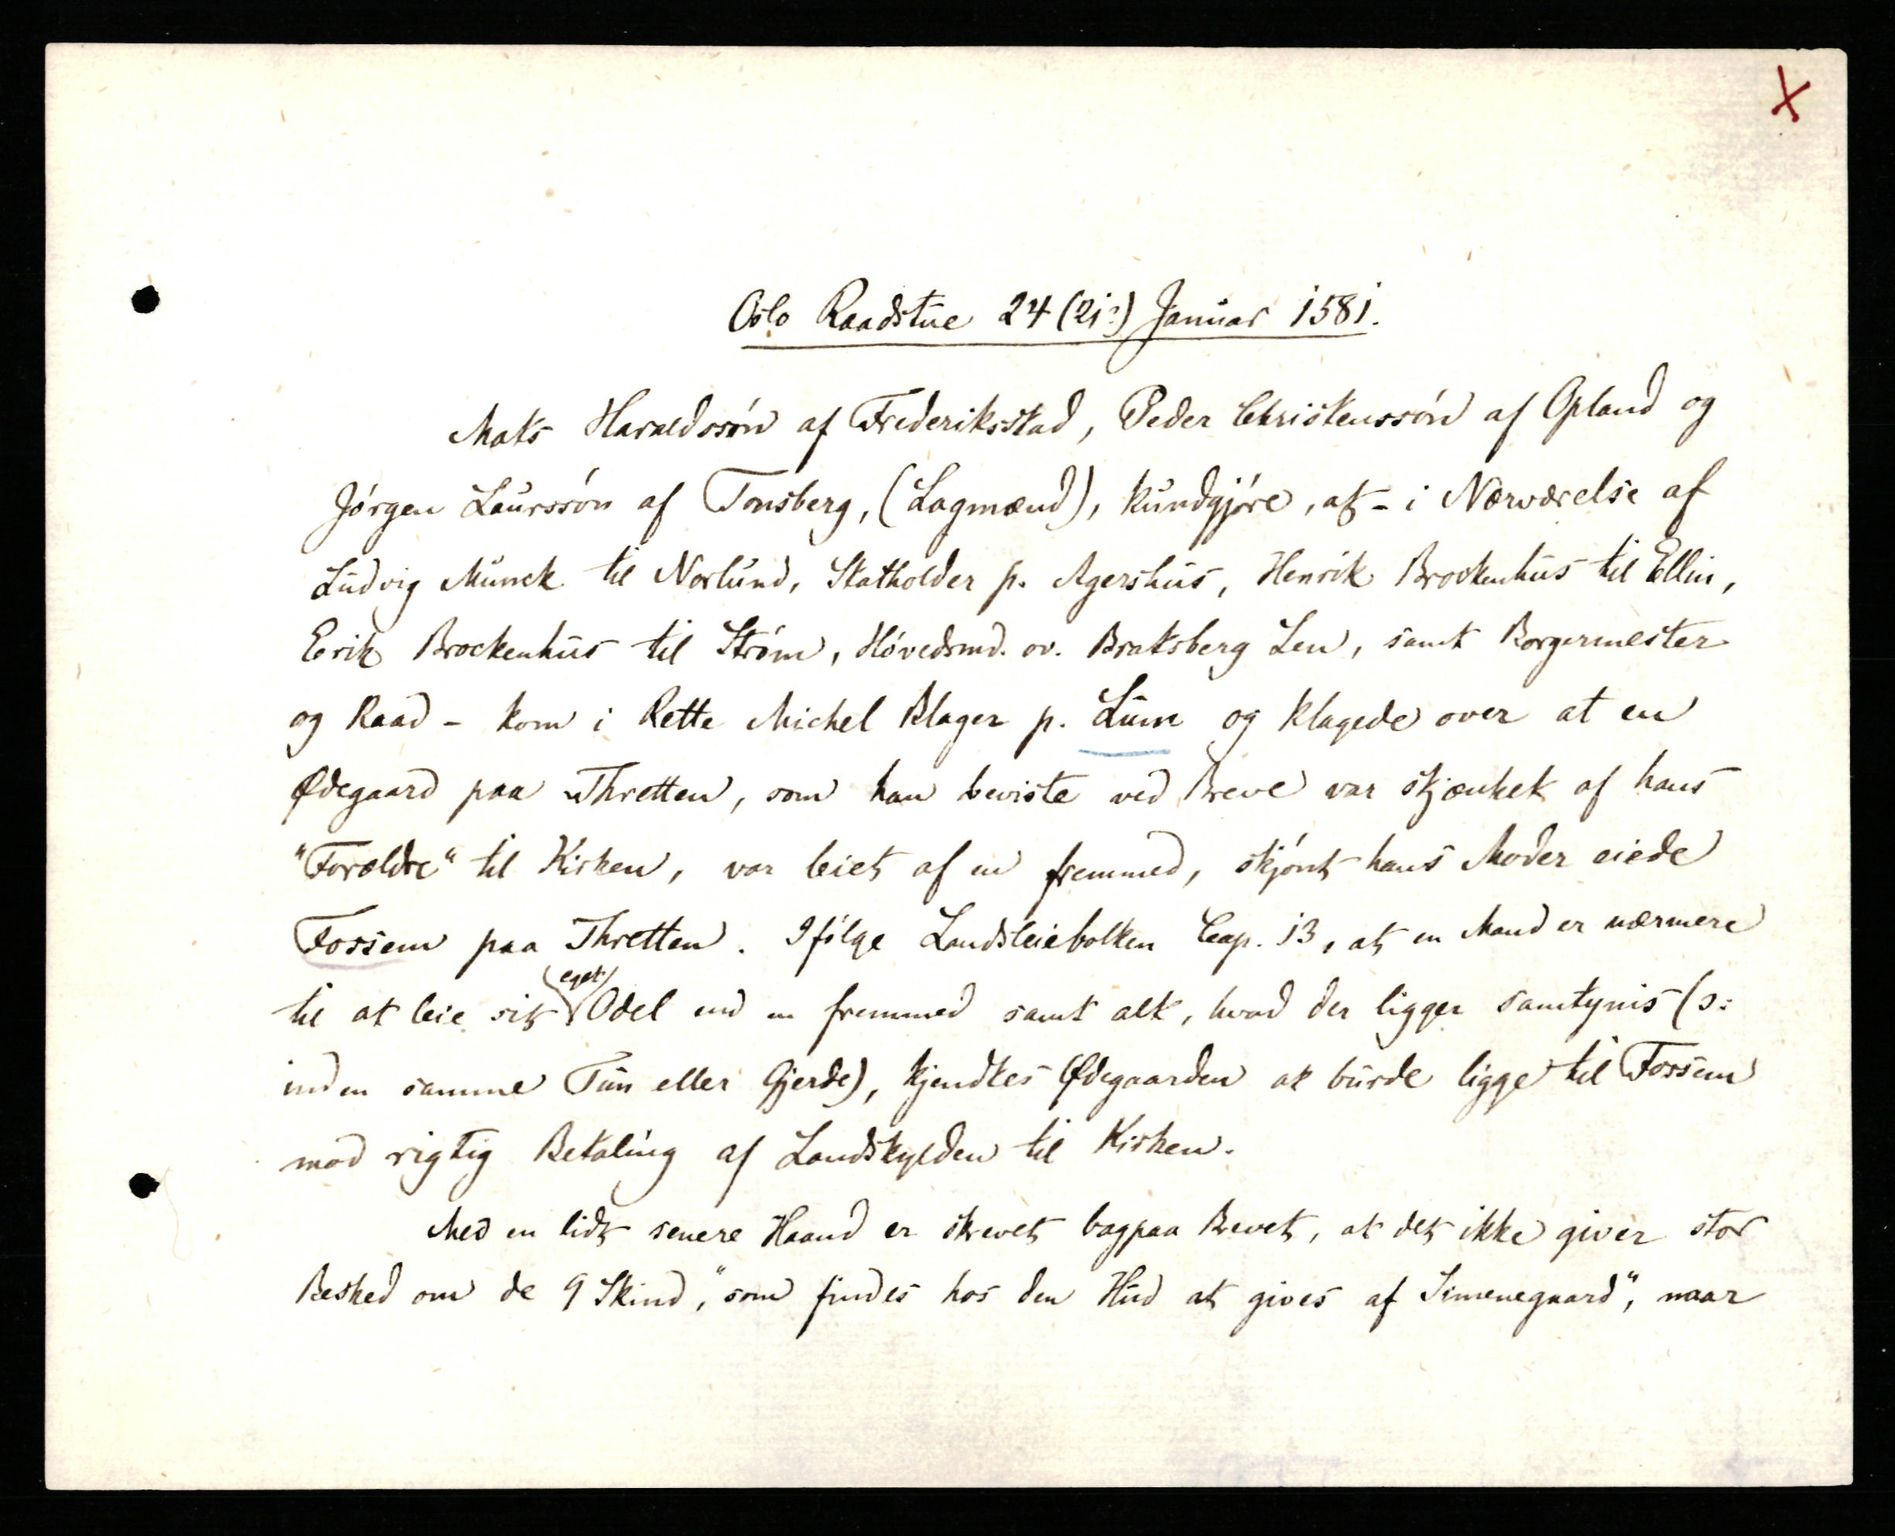 X
Oslo Raadstue 24 (21?) Januar 1581.
Mats Haraldssøn af Frederiksstad, Peder Christenssøn af Opland og
Jørgen Laurssøn af Tonsberg, (Lagmænd), kundgjøre, at - i Nærværelse af
Ludvig Munck til Norlund, Statholder p. Agershus, Henrik Brockenhus til Ellin,
Erik Brockenhus til Strøm, Høvedsmd. ov. Bratsberg Len, samt Borgermester
og Raad - kom i Rette Michel Blager p. Lum og klagede over at en
Ødegaard paa Thretten, som han beviste ved Breve var skjænket af hans
"Forældre" til Kirken, var leiet af en fremmed, skjønt hans Moder eiede
Fossem paa Thretten. Ifølge Landsleiebolken Cap. 13, at en Mand er nærmere
til at leie sit eget Odel end en fremmed samt alt, hvad der ligger samtynis (ɔ:
inden samme Tun eller Gjerde), kjendtes Ødegaarden at burde ligge til Fossem
mod rigtig Betaling af Landskylden til Kirken.
Med en lidt senere Haand er skrevet bagpaa Brevet, at det ikke giver stor
Besked om de 9 Skind, "som findes hos den Hud at gives af Simenegaard", naar